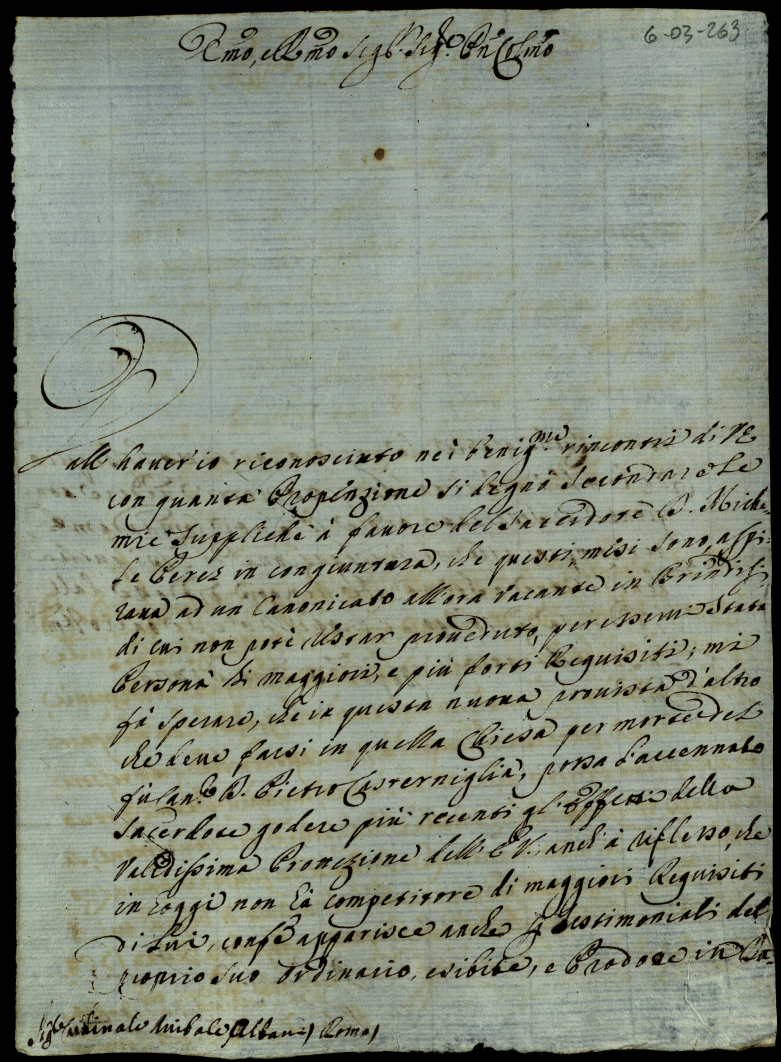 6-03-263
Emo, e Rmo Sigr. Sigr. Pne Colmo
Dall haver io riconosciuto nei benigmi rincontri di VE
con quanta Propenzione si degnò secondare le
mie suppliche à favore del Sacerdote D. Miche
le Perez in congiuntura, che questi, mesi sono, aspi-
rava ad un Canonicato allora vacante in Brindisi
di cui non potè restar proveduto, per esservi stata
Persona di maggiori, e più forti Requisiti; mi
fà sperare, che in questa nuova provista d'altro
che deve farsi in quella Chiesa per morte del
fù Canco D. Pietro, possa l'accennato
Sacerdote godere più recenti gl'effetti della
Validissima Protezione dell'E.V. anch'à riflesso, che
in hoggi non hà competitore di maggiori Requisiti
di lui, come apparisce anche testimoniali del
proprio suo Ordinario, esibite, e Prodotte in Da-
Sigr Cardinale Anibale Albani Roma